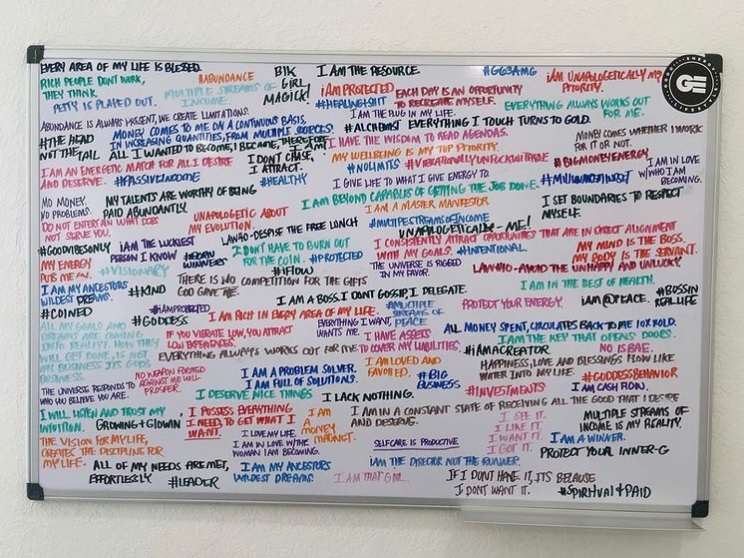 EVERY AREA OF MY LIFE IS BLESSED.
RICH PEOPLE DONT WORK,
THEY THINK.
PETTY IS PLAYED OUT.
#ABUNDANCE
MULTIPLE STREAMS OF
INCOME.
BIK
GIRL
MAGICK!
I AM THE RESOURCE.
#GG33AMG
iAM UNAPOLOGETICALLY MY
PRIORITY.
iAM PROTECTED
#HEALINGSHIT
EACH DAY IS AN OPPORTUNITY
TO RECREATE MYSELF.
EVERYTHING ALWAYS WORKS OUT
FOR ME.
GE
ABUNDANCE IS ALWAYS PRESENT, WE CREATE LIMITATIONS.
I AM THE PLUG IN MY LIFE.
#THE HEAD
NOT THE TAIL
MONEY COMES TO ME ON A CONTINUOUS BASIS,
IN INCREASING QUANTITIES, FROM MULTIPLE SOURCES.
#ALCHEMIST EVERYTHING I TOUCH TURNS TO GOLD.
ALL I WANTED TO BECOME, I BECAME, THEREFORE
I AM
I HAVE THE WISDOM TO READ AGENDAS.
MONEY COMES WHETHER I WORK
FOR IT OR NOT.
I AM AN ENERGETIC MATCH FOR ALL I DESIRE
AND DESERVE.
#PASSIVEINCOME
I DON'T CHASE,
I ATTRACT.
MY WELLBEING IS MY TOP PRIORITY.
#NOLIMITS
#VIBRATIONALLYUNFUCKWITABLE
#BIGMONEYENERGY
I AM IN LOVE
W/ WHO I AM
BECOMING.
#HEALTHY
I GIVE LIFE TO WHAT I GIVE ENERGY TO.
MO MONEY.
NO PROBLEMS.
MY TALENTS ARE WORTHY OF BEING
PAID ABUNDANTLY.
I AM BEYOND CAPABLES OF GETTING THE JOB DONE.
I AM A MASTER MANIFESTOR
I SET BOUNDARIES TO RESPECT
MYSELF.
DO NOT ENTERTAIN WHAT DOES
NOT SERVE YOU.
UNAPOLOGETIC ABOUT
MY EVOLUTION.
LAW40-DESPISE THE FREE LUNCH
#MULTIPESTREAMSOFINCOME
UNAPOLOGETICALLY - ME!
#GOODVIBESONLY
iAM THE LUCKIEST
PERSON I KNOW
I DON'T HAVE TO BURN OUT
FOR THE COIN.
#PROTECTED
I CONSISTENTLY ATTRACT OPPORTUNITIES THAT ARE IN DIRECT ALIGNMENT
WITH MY GOALS.
#INTENTIONAL
MY MIND IS THE BOSS.
MY BODY IS THE SERVANT.
MY ENERGY
PUTS ME ON.
#VISIONARY
#iFLOW
THE UNIVERSE IS RIGGED
IN MY FAVOR.
LAW#10-AVOID THE UNHAPPY AND UNLUCKY.
I AM MY ANCESTORS
WILDEST DREAMS.
#KIND
THERE IS NO COMPETITION FOR THE GIFTS
GOD GAVE ME.
I AM IN THE BEST OF HEALTH.
I AM A BOSS. I DON'T GOSSIP, I DELEGATE.
#BOSSIN
REAL LIFE
#COINED
#IAMPROTECTED
#GODDESS
I AM RICH IN EVERY AREA OF MY LIFE.
#MULTIPLE
STREAMS OF
PEACE
PROTECT YOUR ENERGY.
iAM@PEACE.
ALL MY GOALS AND
DREAMS ARE COMING
INTO REALITY. HOW THEY
WILL GET DONE, IS NOT
MY BUSINESS ITS GODS
BUSINESS.
IF YOU VIBRATE LOW, YOU ATTRACT
LOW EXPERIENCES.
EVERYTHING I WANT,
WANTS ME.
ALL MONEY SPENT, CIRCULATES BACK TO ME 10X FOLD.
I HAVE ASSETS
TO COVER MY LIABILITIES.
I AM THE KEY THAT OPENS DOORS.
EVERYTHING ALWAYS WORKS OUT FOR ME
#iAMACREATOR
NO IS BAE.
NO WEAPON FORMED
AGAINST ME WILL
PROSPER.
I AM A PROBLEM SOLVER.
I AM FULL OF SOLUTIONS.
I AM LOVED AND
FAVORED.
#BIG
BUSINESS
HAPPINESS, LOVE, AND BLESSINGS FLOW LIKE
WATER INTO MY LIFE.
#GODDESSBEHAVIOR
THE UNIVERSE RESPONDS TO
WHO YOU BELIEVE YOU ARE.
I DESERVE NICE THINGS
I LACK NOTHING.
#INVESTMENTS
I AM CASH FLOW.
I WILL LISTEN AND TRUST MY
INTUITION.
GROWING+GLOWIN
I POSSESS EVERYTHING
I NEED, TO GET WHAT I
WANT.
I AM
A
MONEY
MAGNET.
I AM IN A CONSTANT STATE OF RECEIVING ALL THE GOOD THAT I DESIRE
AND DESERVE.
I SEE IT.
I LIKE IT.
I WANT IT.
I GOT IT.
MULTIPLE STREAMS OF
INCOME IS MY REALITY.
I AM A WINNER.
PROTECT YOUR INNER-G
THE VISION FOR MY LIFE,
CREATES THE DISCIPLINE FOR
MY LIFE.
I LOVE MY LIFE.
I AM IN LOVE W/THE
WOMAN I AM BECOMING.
SELFCARE IS PRODUCTIVE
ALL OF MY NEEDS ARE MET,
EFFORTLESSLY
#LEADER
I AM MY ANCESTORS
WILDEST DREAMS.
iAM THE DIRECTOR NOT THE RUNNER.
I AM THAT GIRL.
IF I DON'T HAVE IT, ITS BECAUSE
I DON'T WANT IT.
#SPIRITUAL+PAID